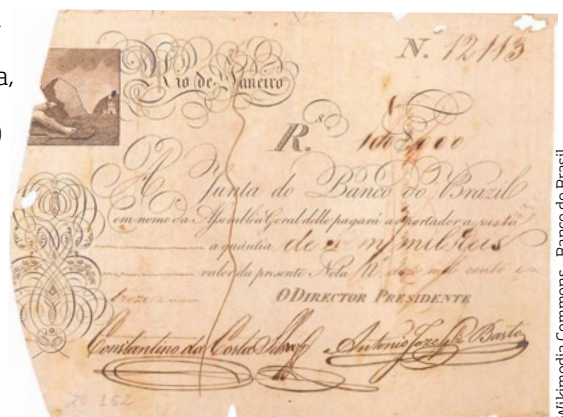 a,
)
Nº. 12113
Rio de Janeiro
R.s 100$000
A Junta do Banco do Brazil
em nome da Assemblea Geral delle pagará ao portador a vista
a quantia de mil reis
valor da presente Nota Nº. doze mil cento e
treze
O DIRECTOR PRESIDENTE
Constantino da Costa Antonio Joze da Basto
28 162
Wikimedia Commons - Banco do Brasil